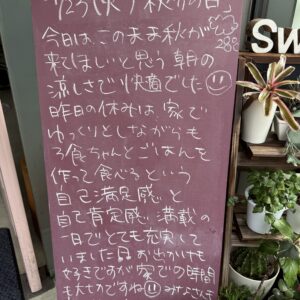 今日は、このまま秋が
来てほしいと思う朝の
涼しさで快適でした
28℃
昨日の休みは、家で
ゆっくりとしながらも
3食ちゃんとごはんを
作って食べるという
自己満足感と
自己肯定感満載の
一日でとても充実して
いました
お出かけも
好きですが家での時間
も大切ですね
SW